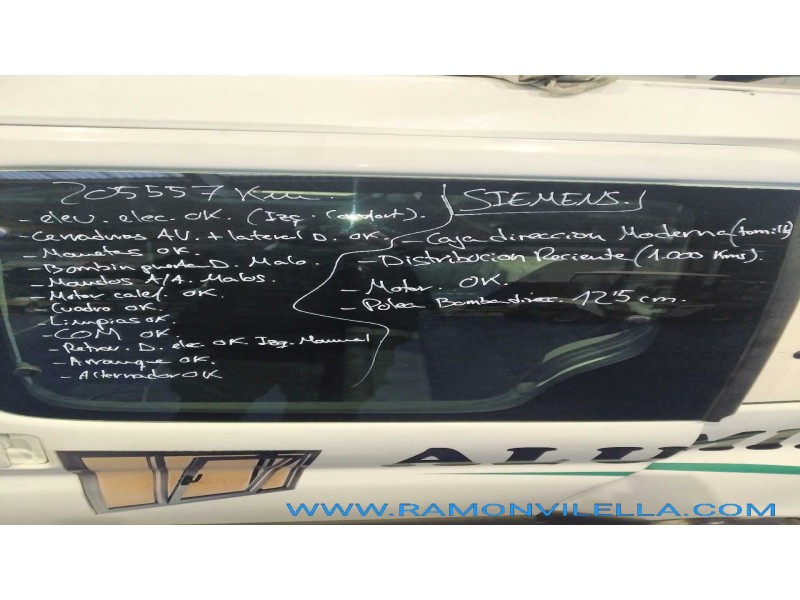 205557 Km.
- elev. elec. OK. (Izq. Confort).
- Cerraduras AV. + lateral D. OK.
- Manetas OK.
- Bombin puerta D. Malo.
- Mandos A/A. Malos.
- Motor calef. OK.
- Cuadro OK.
- Limpias OK.
- COM OK.
- Retrov. D. elec. OK. Izq. Manual
- Arranque OK.
- Alternador OK
SIEMENS.
- Caja direccion Moderna (tornillo)
- Distribucion Reciente (1.000 Kms).
- Motor. OK.
- Polea Bomba direc. 12'5 cm.
ALUMI
WWW.RAMONVILELLA.COM